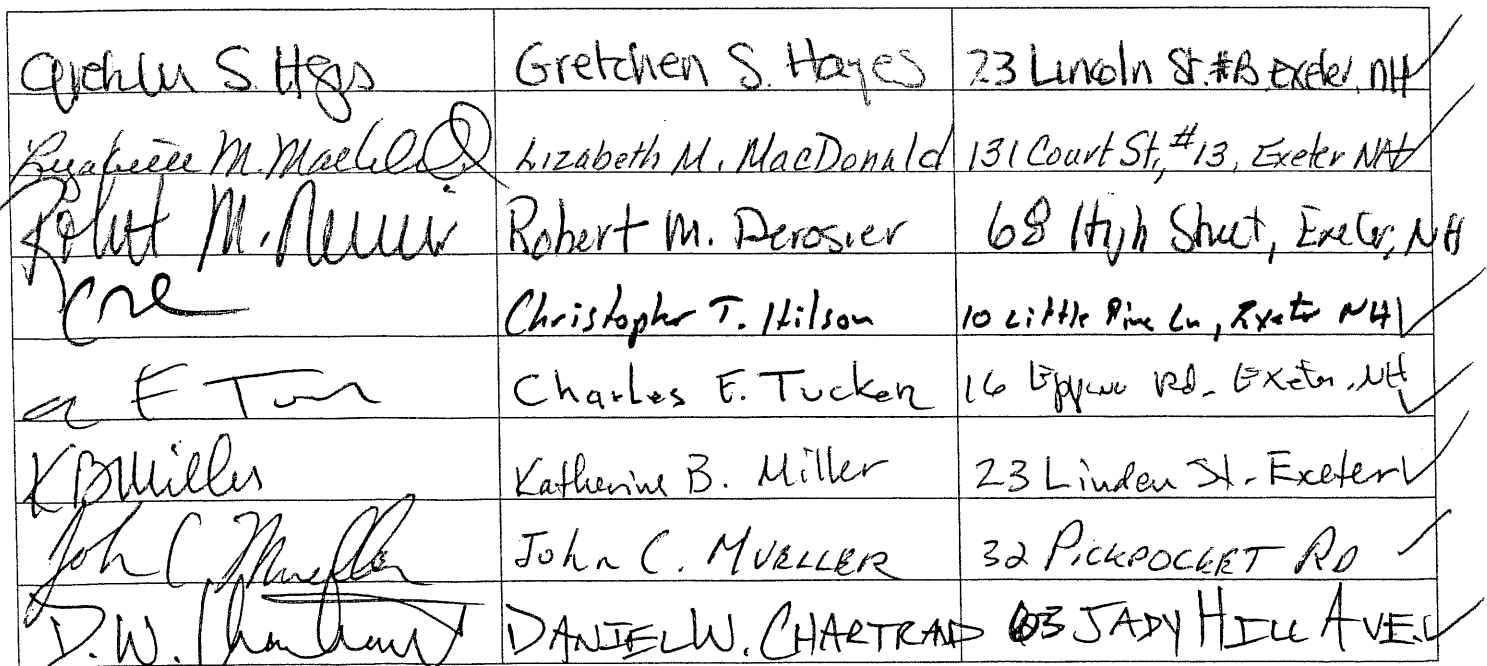 Gretchen S. Hayes Gretchen S. Hayes 23 Lincoln St. #B Exeter, NH
Lizabeth M. MacDonald Lizabeth M. MacDonald 131 Court St, #13, Exeter NH
Robert M. Robert M. Derosier 68 High Street, Exeter, NH
Christopher T. Hilson 10 Little Pine Ln, Exeter NH
E T Charles E. Tucker 16 Rd. Exeter, NH
K B Miller Katherine B. Miller 23 Linden St. Exeter
John C. Mueller John C. MUELLER 32 PICKPOCKET RD
D.W. Chartrand DANIEL W. CHARTRAND 63 JADY HILL AVE.